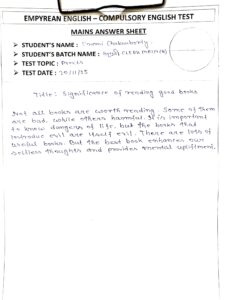 EMPYREAN ENGLISH – COMPULSORY ENGLISH TEST
MAINS ANSWER SHEET
➤ STUDENT'S NAME : Chakraborty
➤ STUDENT'S BATCH NAME :
➤ TEST TOPIC : Precis
➤ TEST DATE : 20/11/25
Title: Significance of reading good books
Not all books are worth reading. Some of them
are bad, while others harmful. It is important
to know dangers of life, but the books that
introduce evil are itself evil. There are lots of
useful books. But the best book enhances our
selfless thoughts and provides mental upliftment.